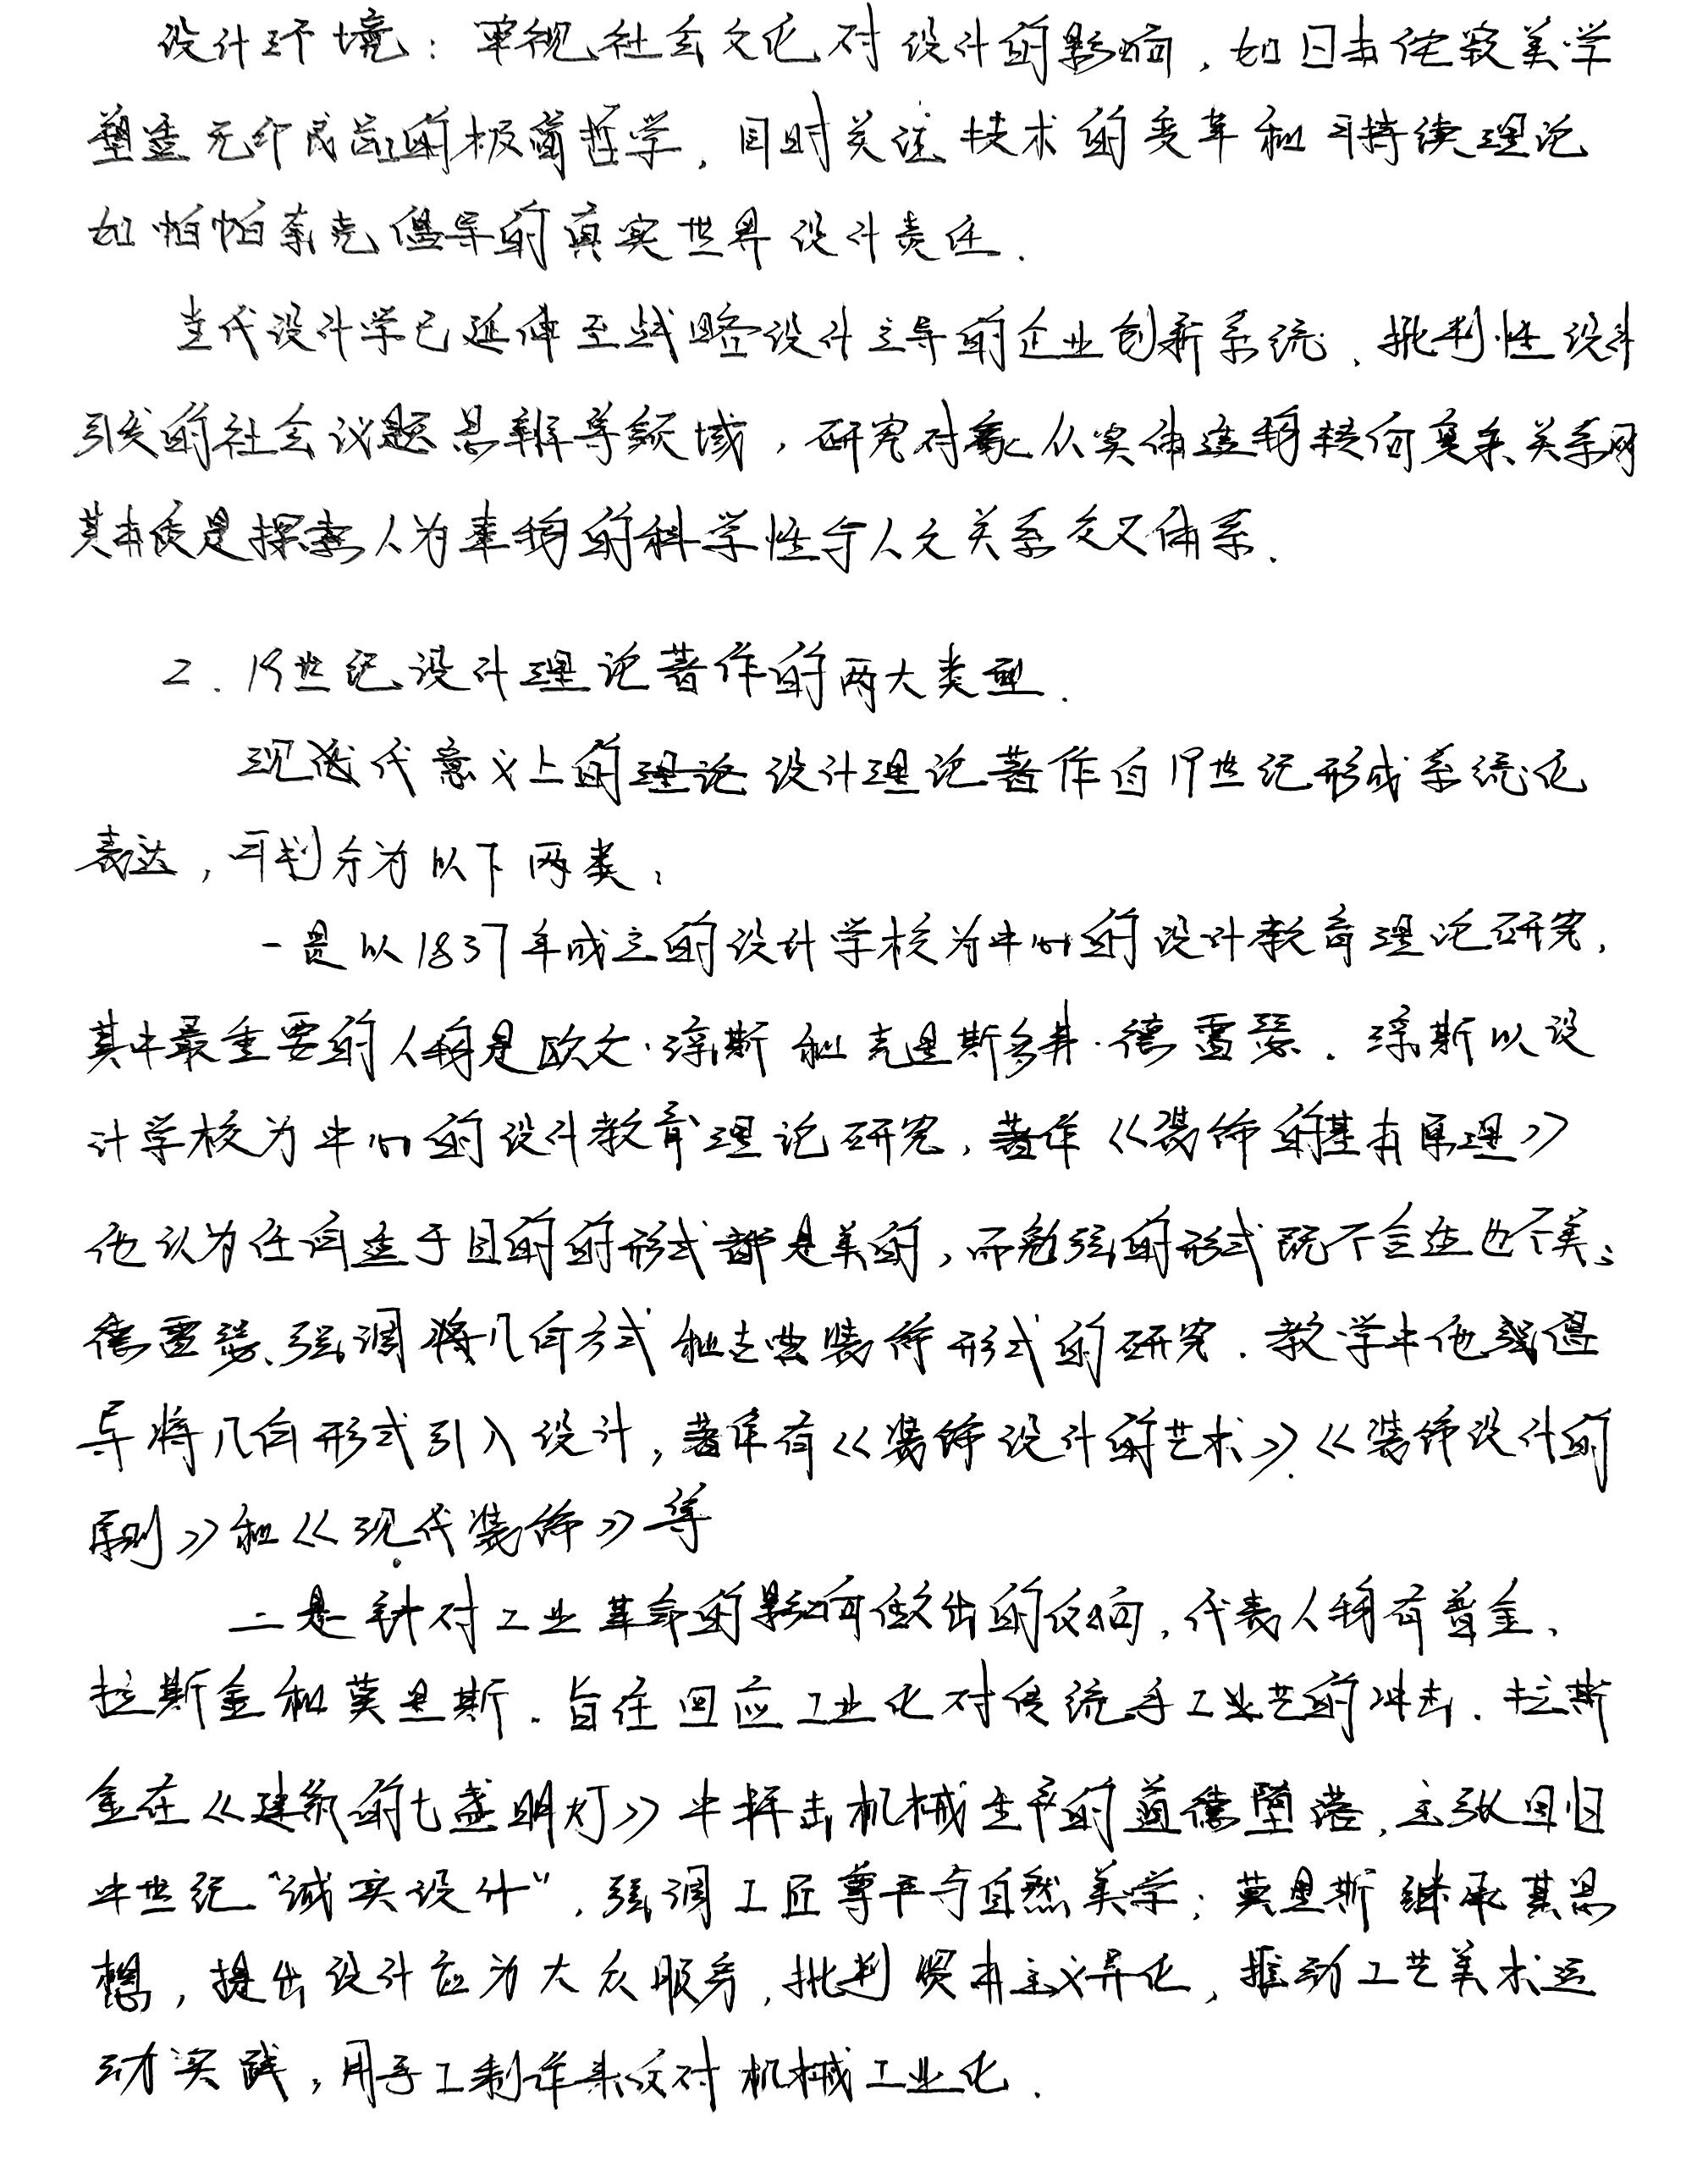 设计环境：审视社会文化对设计的影响，如日本侘寂美学
塑造无印良品的极简哲学，同时关注技术的变革和可持续理论
如帕帕奈克倡导的真实世界设计责任.
当代设计学已延伸至战略设计主导的企业创新系统、批判性设计
引发的社会议题思辨等领域，研究对象从实体造物转向复杂关系网
其本质是探索人为事物的科学性与人文关系交叉体系.
2. 19世纪设计理论著作的两大类型.
现代意义上的设计理论著作自19世纪形成系统化
表达，可划分为以下两类：
一是以1837年成立的设计学校为中心的设计教育理论研究，
其中最重要的人物是欧文·琼斯和克里斯多弗·德雷瑟. 琼斯以设
计学校为中心的设计教育理论研究，著作《装饰的基本原理》
他认为任何适于目的的形式都是美的，而勉强的形式既不合适也不美；
德雷瑟强调将几何方式和古典装饰形式的研究. 教学中他提倡
导将几何形式引入设计，著作有《装饰设计的艺术》《装饰设计的
原则》和《现代装饰》等
二是针对工业革命的影响做出的反响，代表人物有普金、
拉斯金和莫里斯. 旨在回应工业化对传统手工业艺的冲击. 拉斯
金在《建筑的七盏明灯》中抨击机械生产的道德堕落，主张回归
中世纪“诚实设计”，强调工匠尊严与自然美学；莫里斯继承其思
想，提出设计应为大众服务，批判资本主义异化，推动工艺美术运
动实践，用手工制作来反对机械工业化.